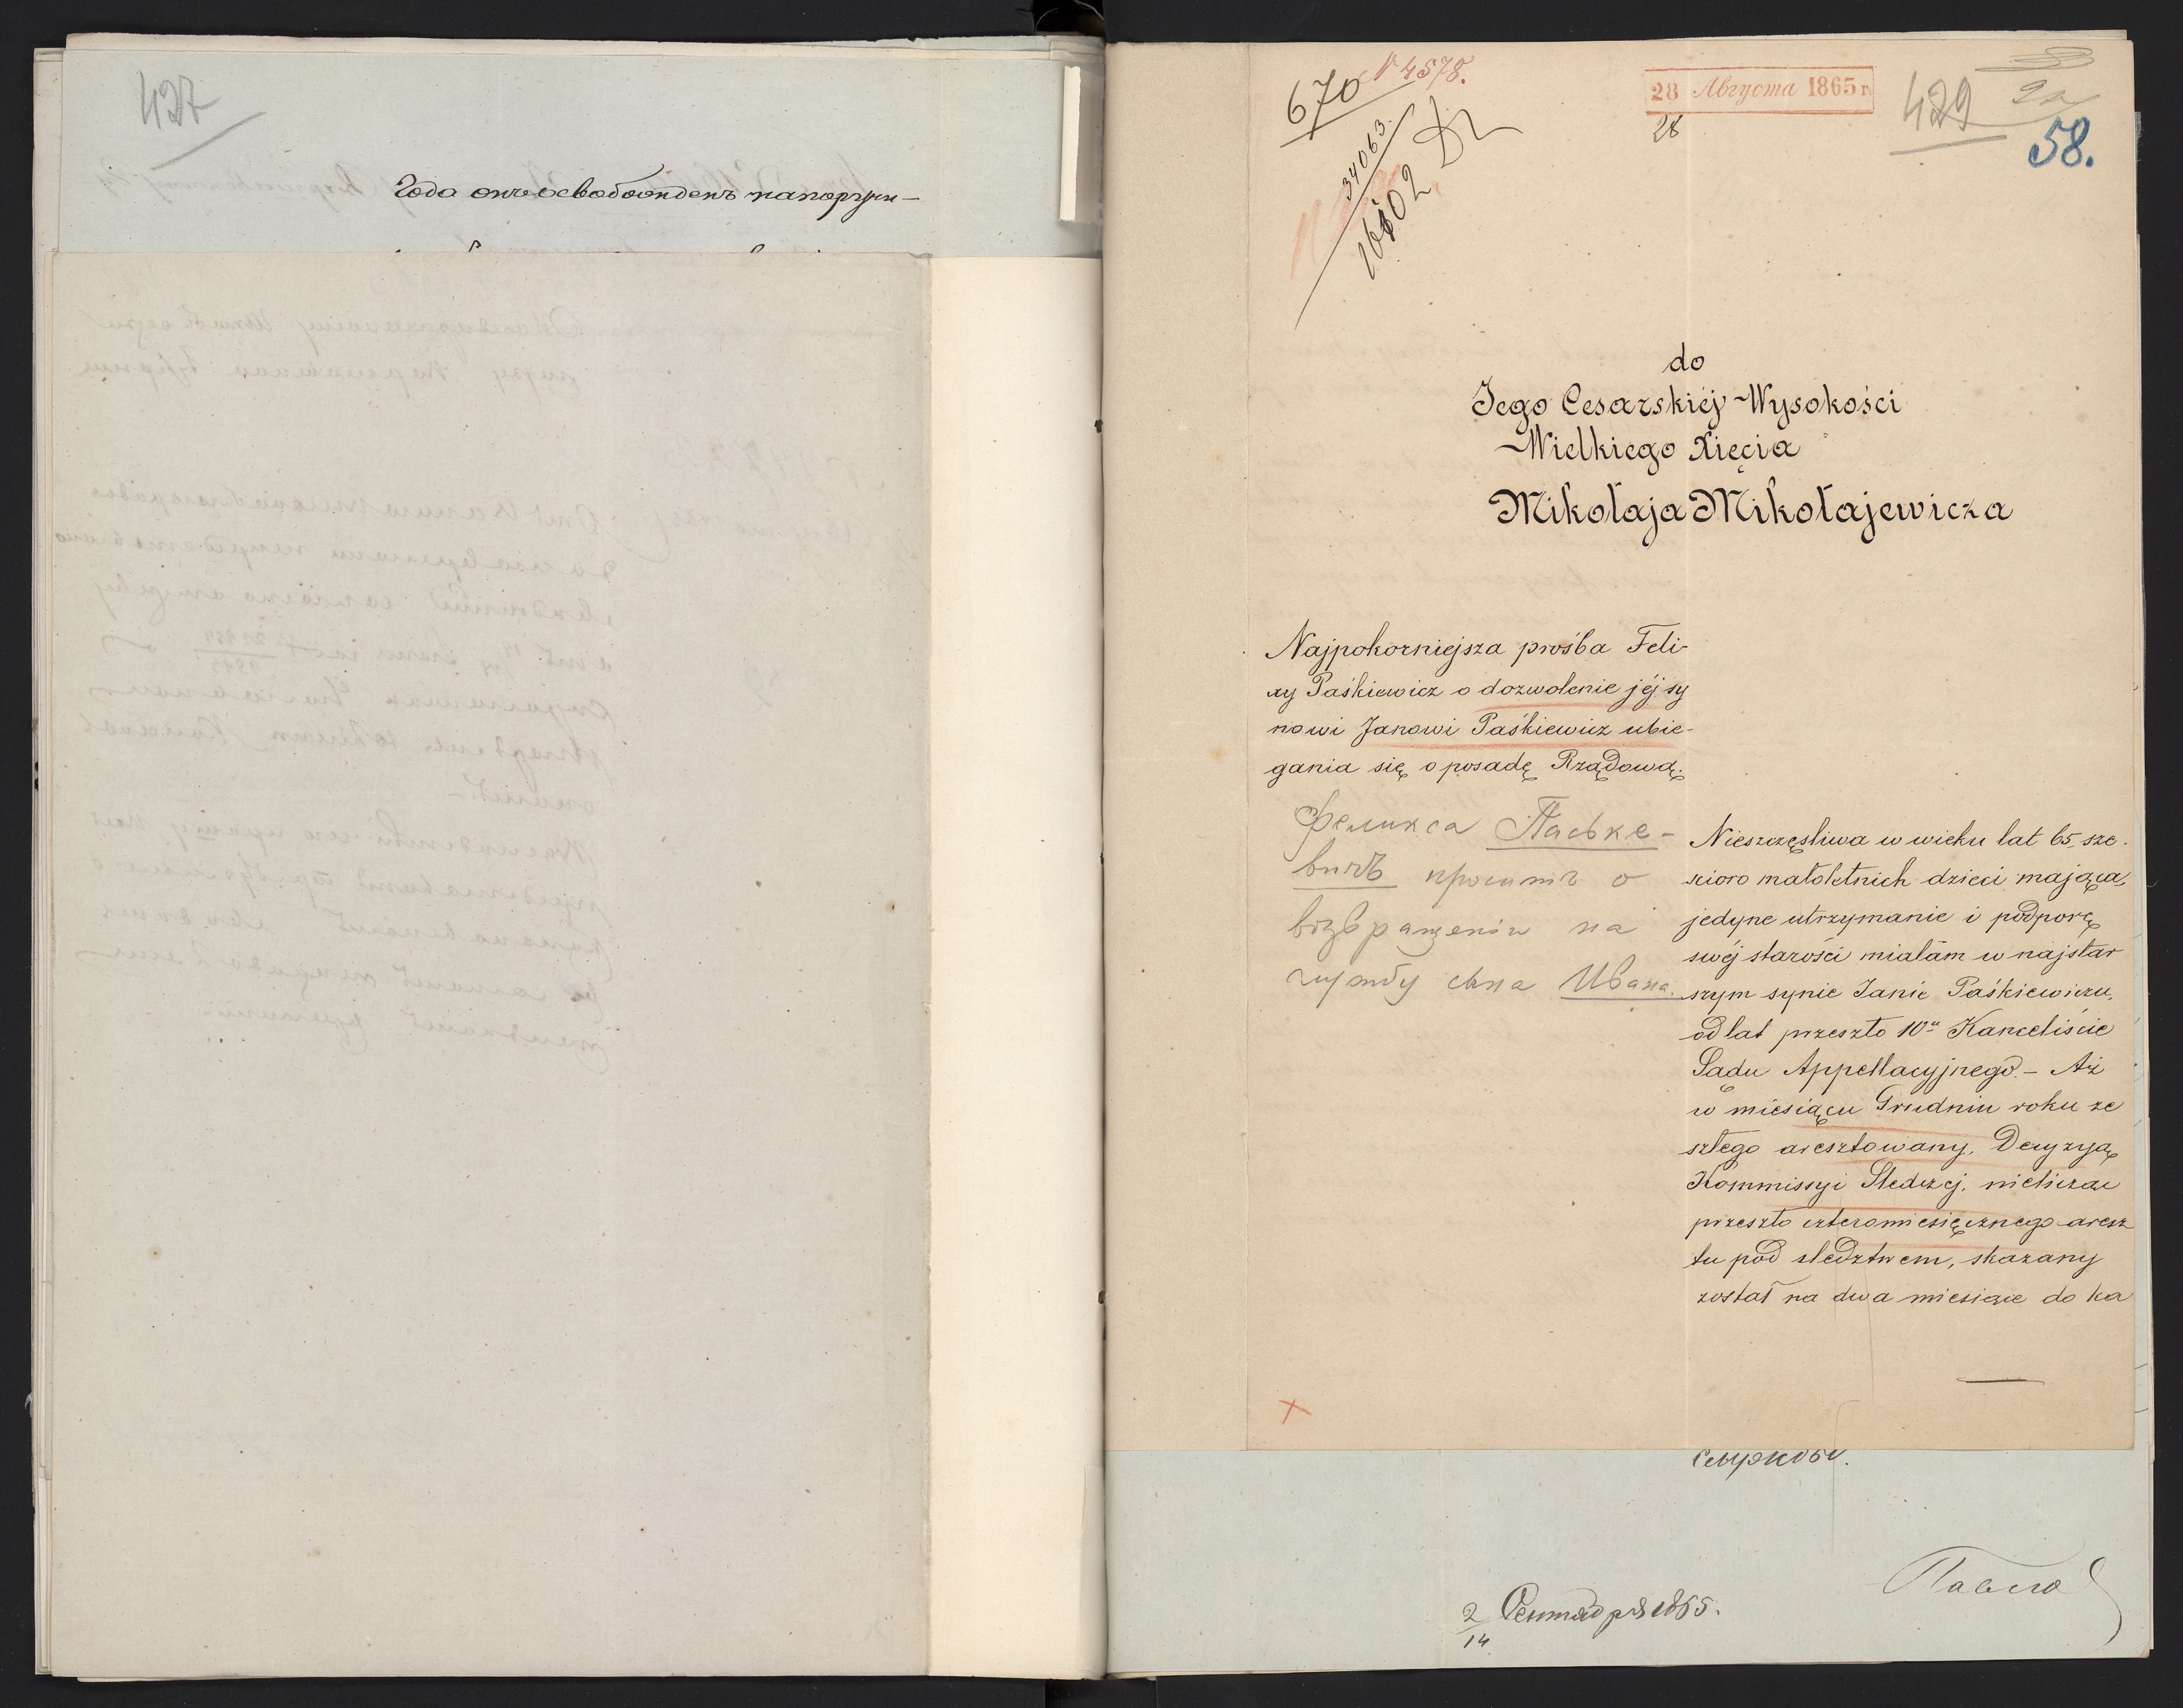 427
года онъ освобожденъ на поручи-
670 N 4578.
34063.
28 Августа 1865 г.
28
429
2a
58.
do
Jego Cesarskiéj Wysokości
Wielkiego Xięcia
Mikołaja Mikołajewicza
Najpokorniejsza prośba Feli-
xy Paśkiewicz o dozwolenie jéj sy
nowi Janowi Paśkiewicz ubie-
gania się o posadę Rządową.
Феликса Паське-
вичъ проситъ о
возвращеніи на
службу сына Ивана.
Nieszczęśliwa w wieku lat 65, sze-
scioro małoletnich dzieci mająca,
jedyne utrzymanie i podporę
swéj starości miałam w najstar
szym synie Janie Paśkiewiczu,
od lat przeszło 10u Kanceliście
Sądu Appellacyjnego. – Aż
w miesiącu Grudniu roku ze
szłego aresztowany, Decyzyą
Kommissyi Sledczej, nielicząc
przeszło czteromiesięcznego aresz
tu pod sledztwem, skazany
został na dwa miesiące do ka
2/14 Сентября 1865.